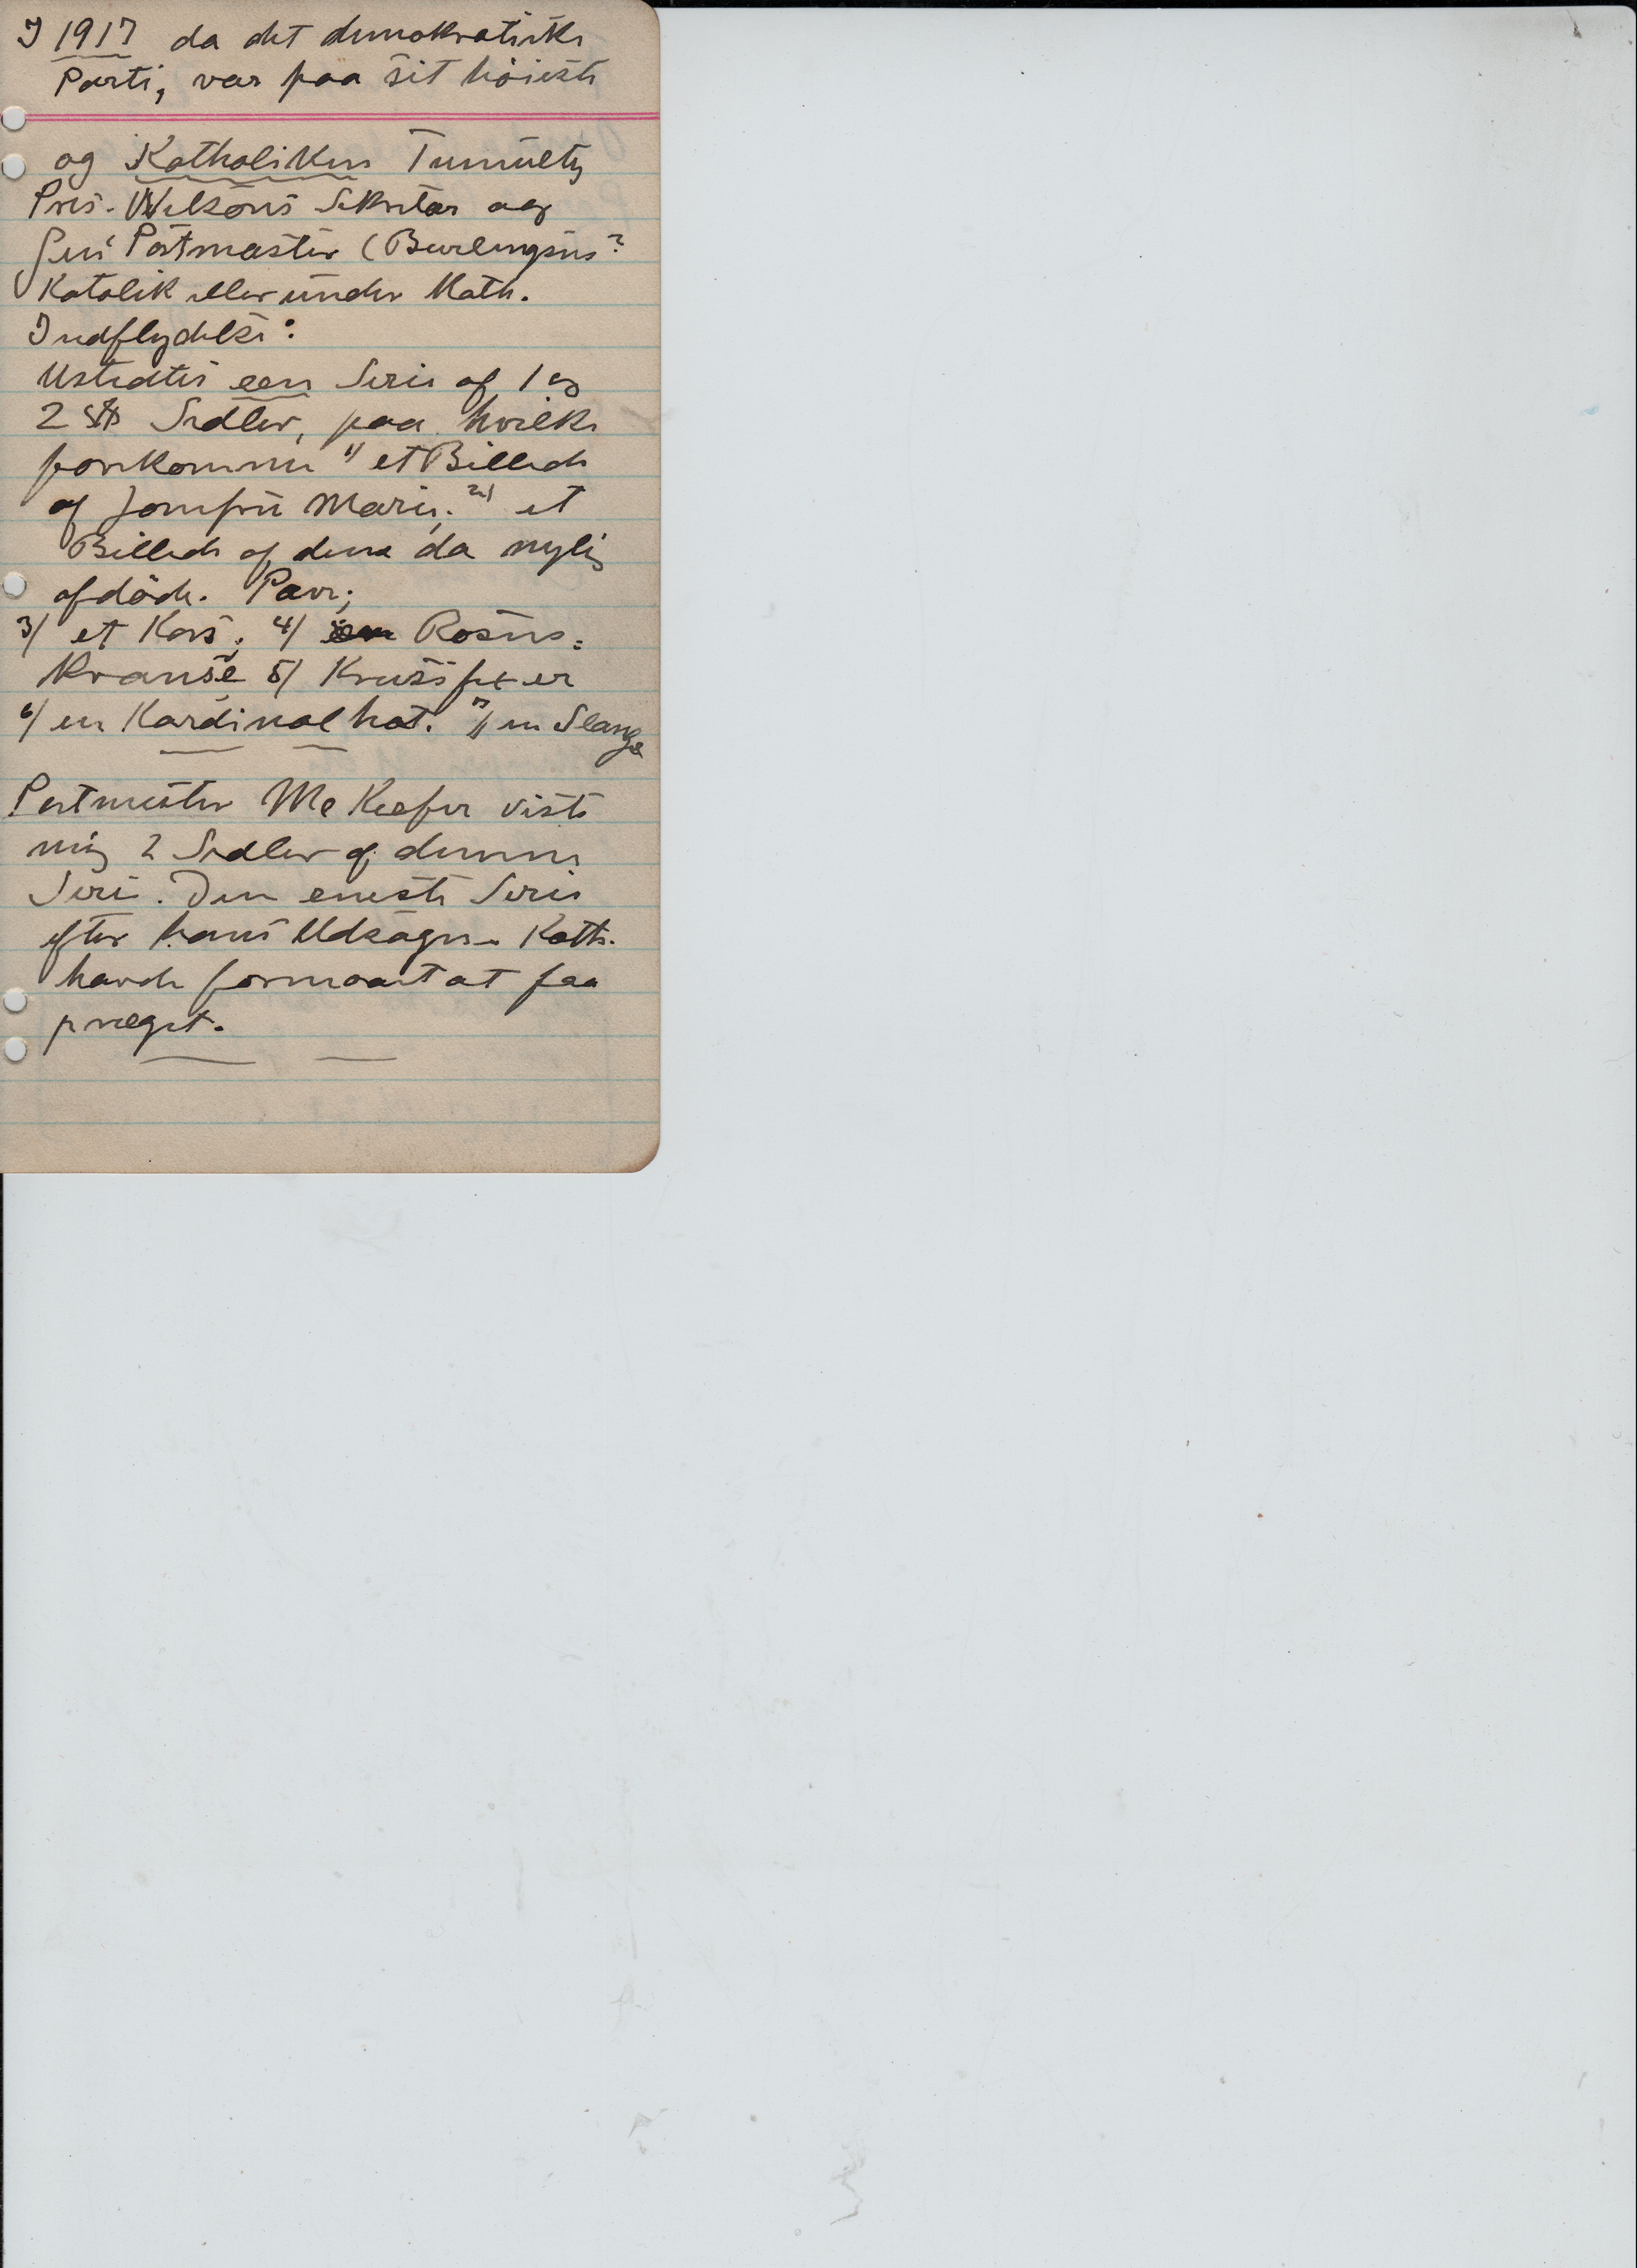 I 1917 da det demokratiske
Parti, var paa sit höieste
og Katholiken Tumulty
Pres. Wilsons Sekretær og
Gen. Postmaster (Burlesons?
Katolik eller under Kath.
Indflydelse:
Udstedtes een Serie af 1 og
2 $ Sedler, paa hvilke
forekommer 1) et Billede
af Jomfru Maria; 2) et
Billede af den da nylig
afdöde. Pave;
3/ et Kors; 4/ Rosens=
Kranse 5/ Krusifixer
6/ en Kardinalhat. 7/ en Slange
Postmester Mc Keefer viste
mig 2 Sedler af denne
Serie. Den eneste Serie
efter hans Udsagn Kath.
havde formaaet at faa
præget.